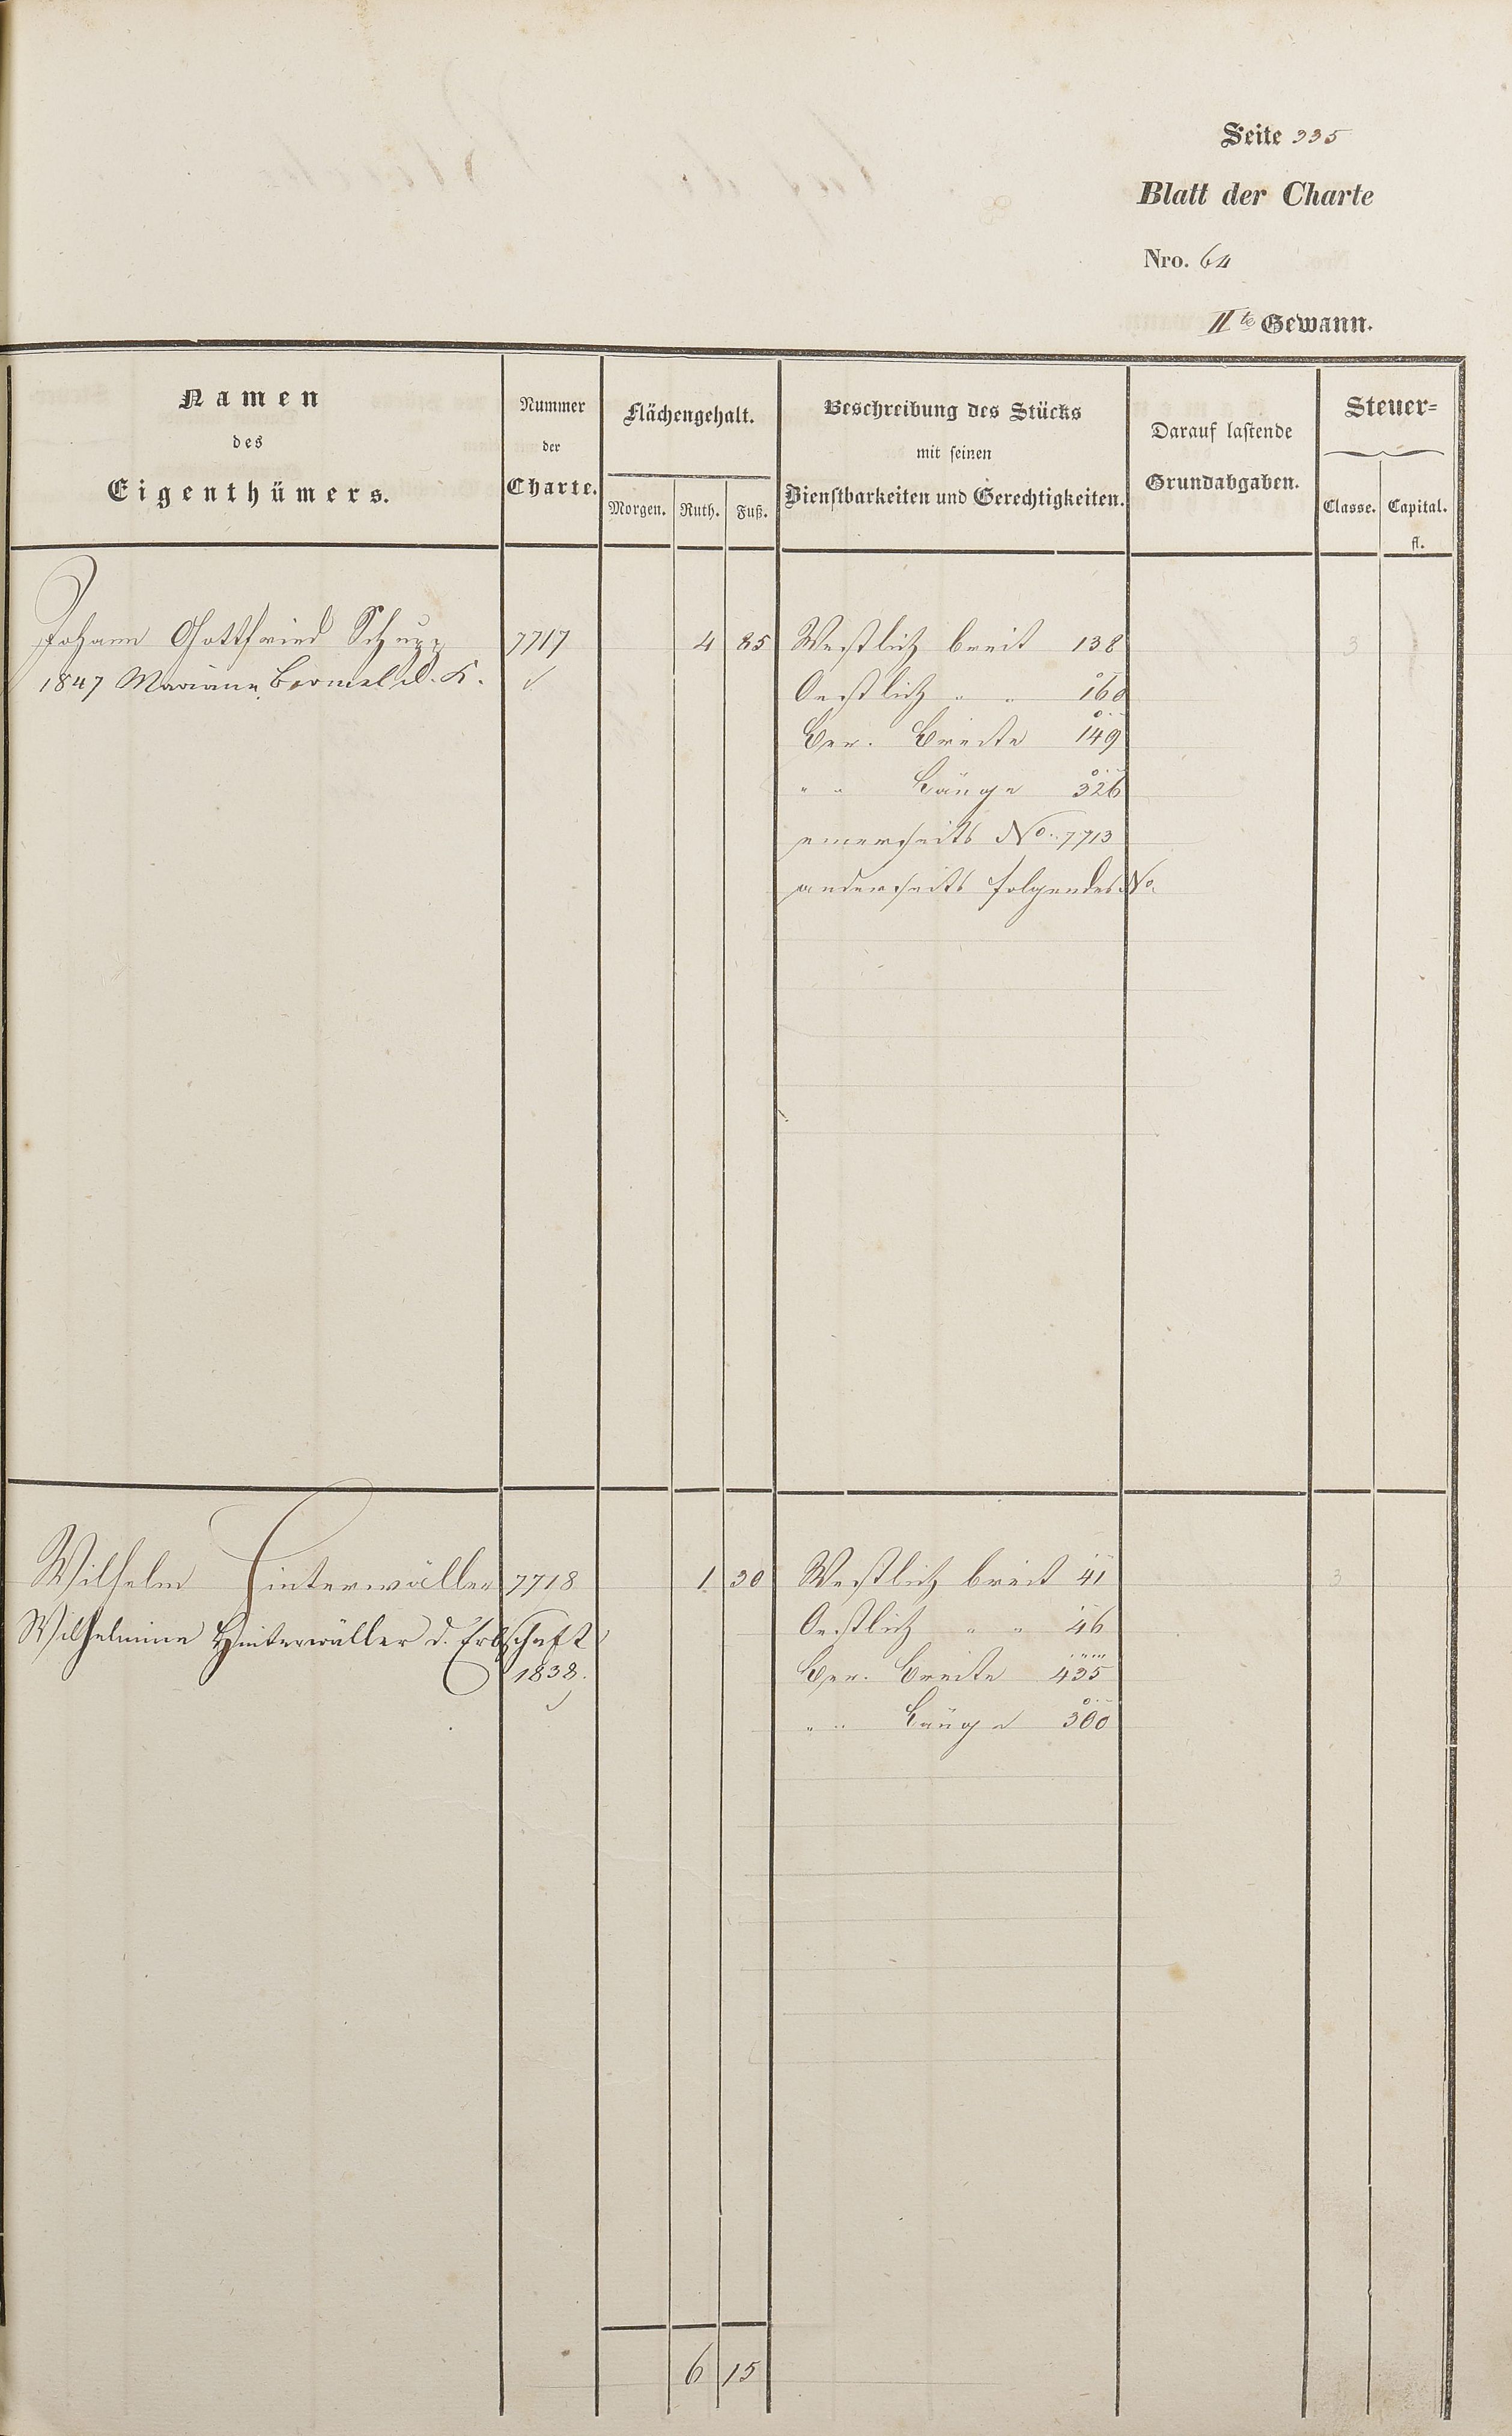 Seite 335
Blatt der Charte
Nro. 64
IIte Gewann.
Namen
des
Eigenthümers.
Nummer
der
Charte.
Flächengehalt.
Morgen. Ruth. Fuß.
Beschreibung des Stücks
mit seinen
Dienstbarkeiten und Gerechtigkeiten.
Darauf lastende
Grundabgaben.
Steuer-
Classe. Capital.
fl.
Johann Gottfried Schupp 7717 4 85 Westlich breit 138 3
1847 Mariane d. K. Oestlich " " 160
Ger. Breite 149
" " Länge 326
einerseits No. 7713
anderseits folgendes No.
Wilhelm Hinterwäller 7718 1 30 Westlich breit 41 3
Wilhelmine Hinterwäller d. Erbschaft Oestlich " " 46
1838. Ger. Breite 435
" " Länge 300
6 15